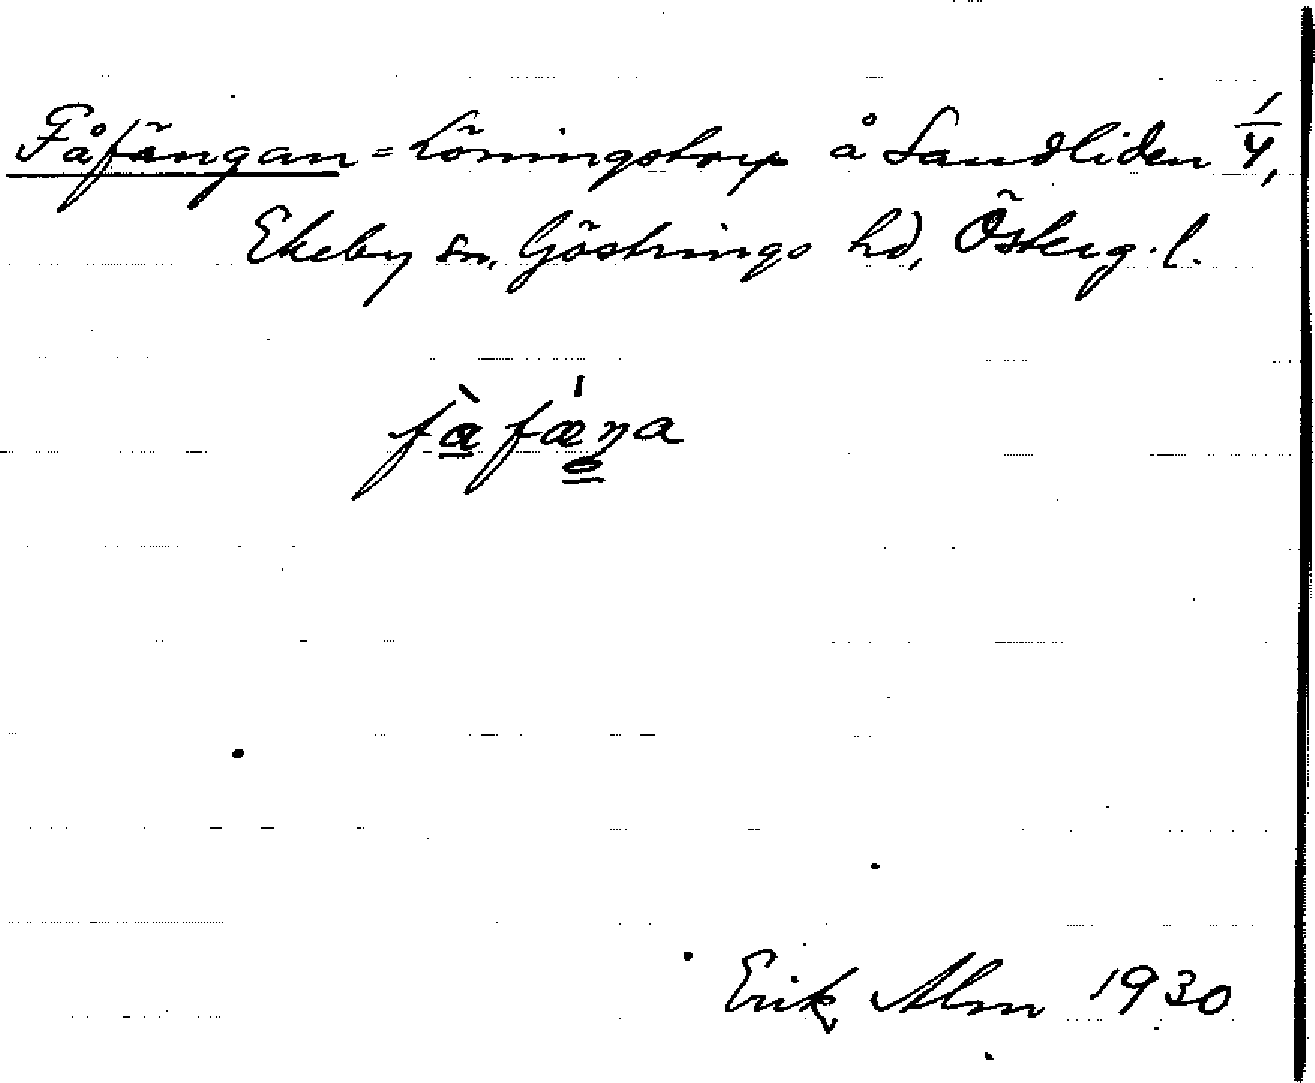 Fåfängan = Löningstorp å Sandliden 1/4,
Ekeby sn, Göstrings hd, Österg. l.
fàfæ̀ŋa
Erik Alm 1930